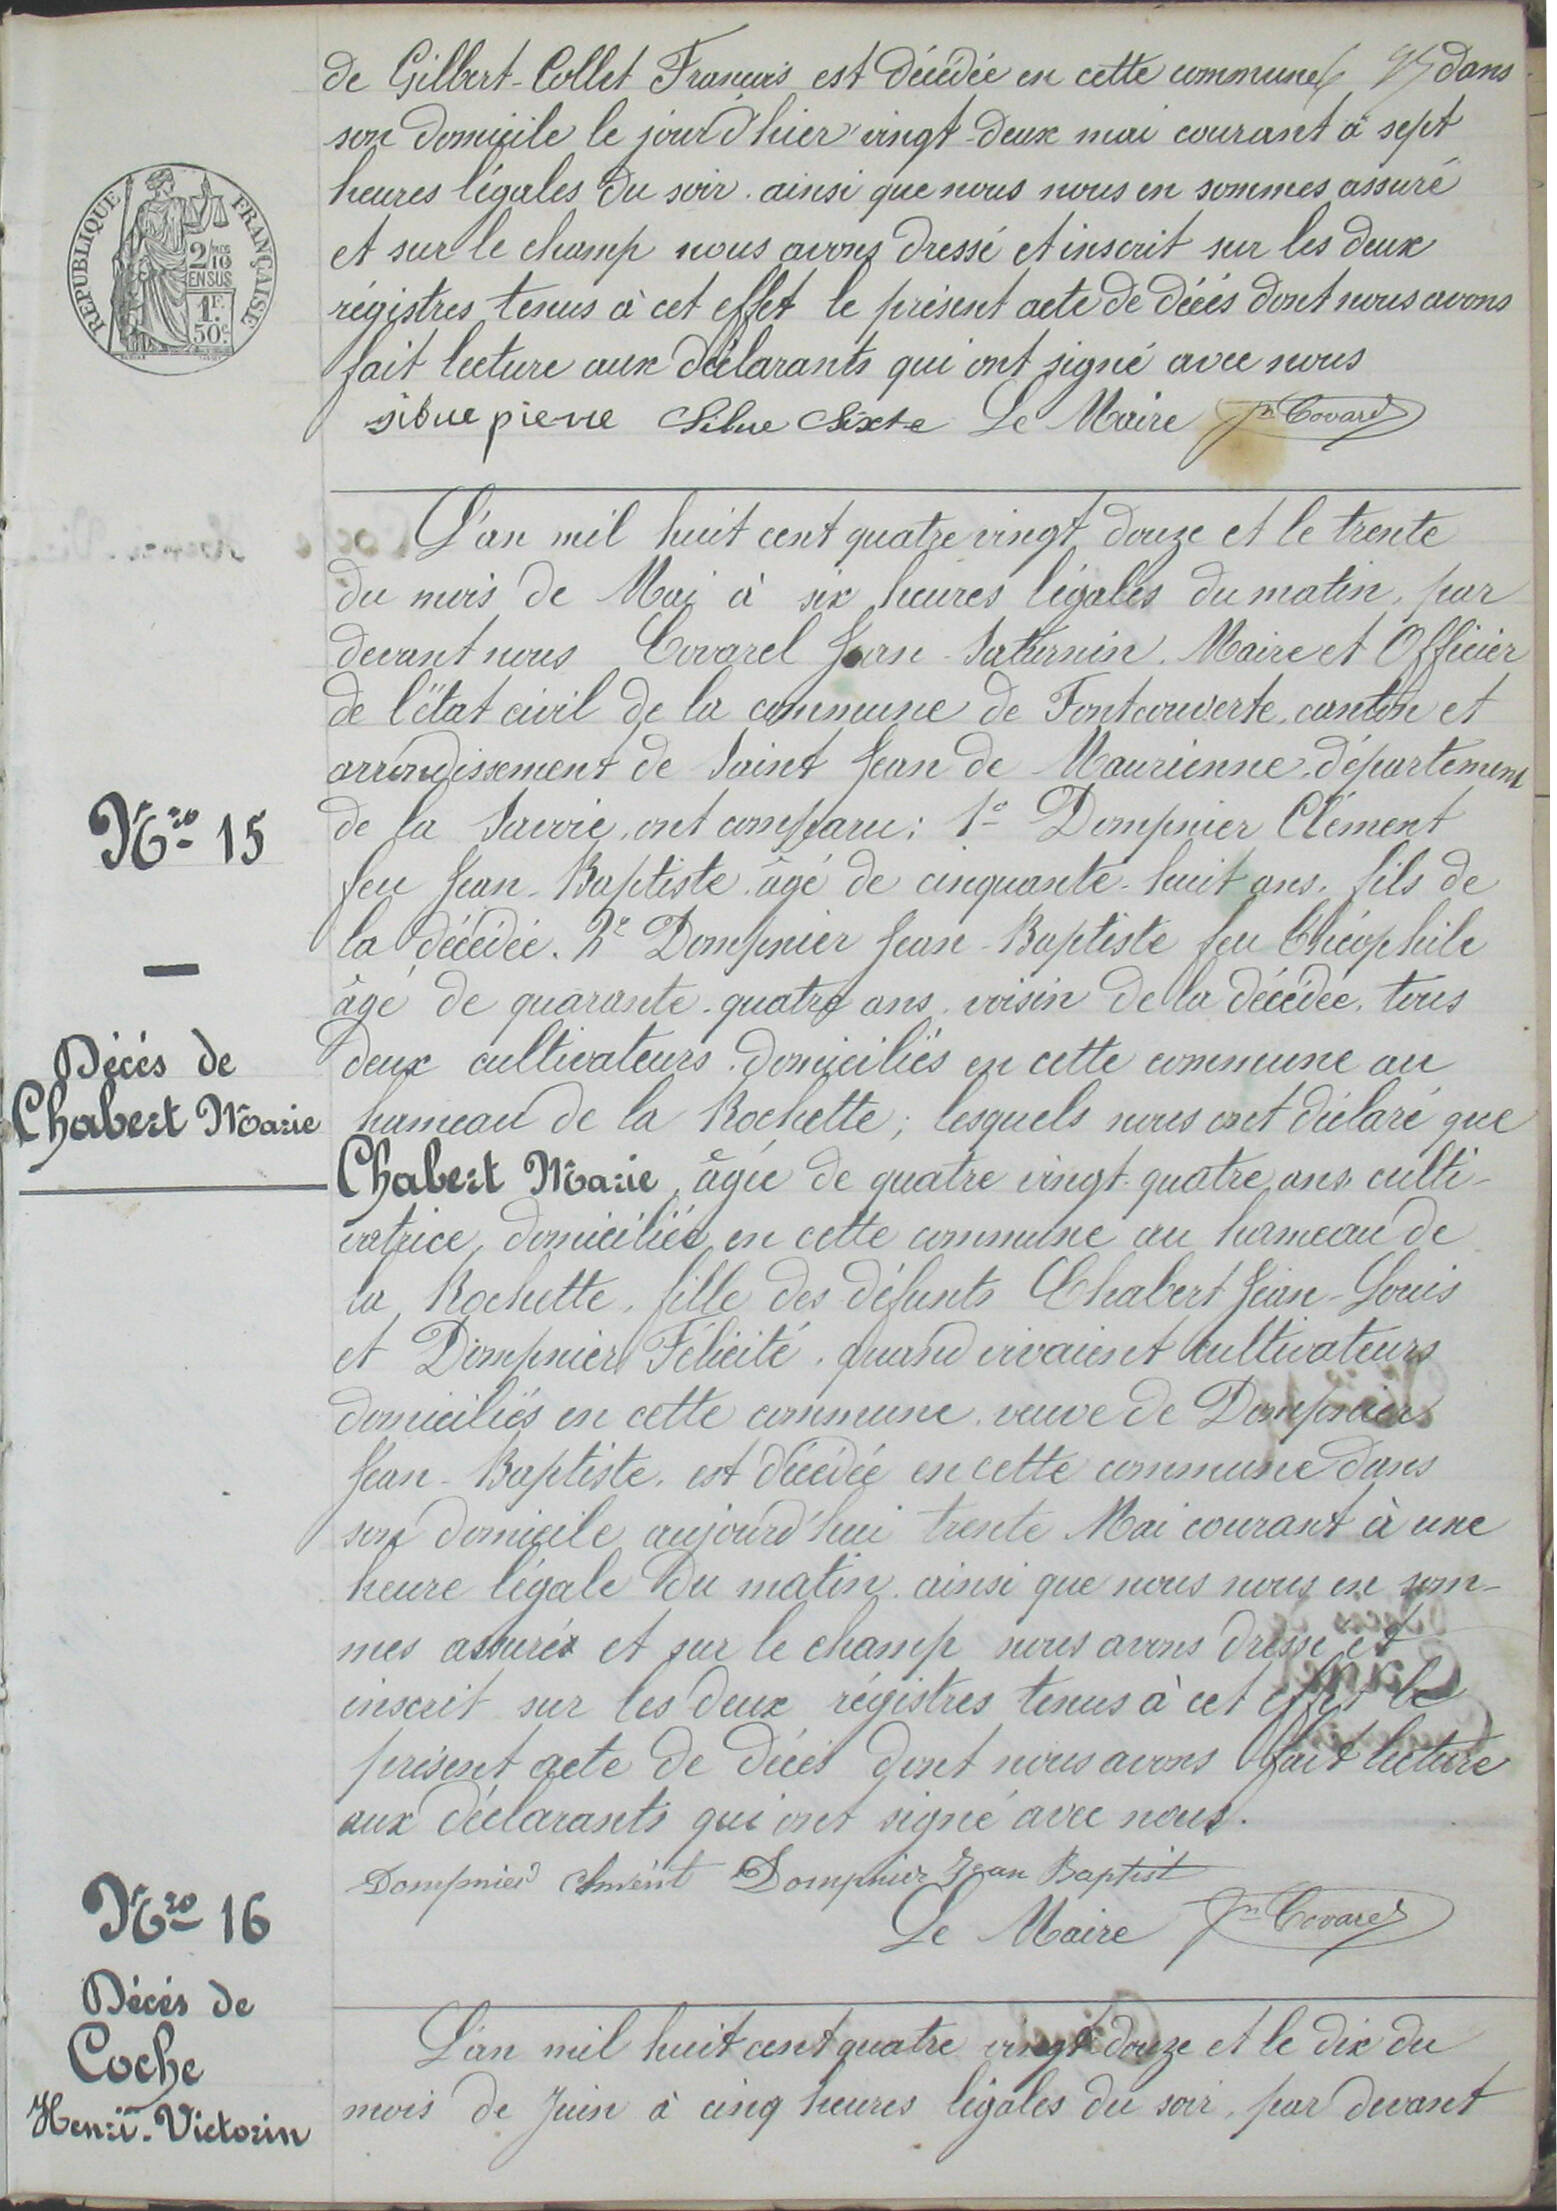 de Gilbert-Collet François est décédée en cette commune dans
son domicile le jour d'hier vingt-deux mai courant à sept
heures légales du soir. ainsi que nous nous en sommes assuré
et sur le champ nous avons dressé et inscrit sur les deux
régistres tenus à cet effet le présent acte de décés dont nous avons
fait lecture aux déclarants qui ont signé avec nous
sibue pierre Sibue Sixte Le Maire Jn Covarel
RÉPUBLIQUE FRANÇAISE
2/10
EN SUS
1F.
50c.
L'an mil huit cent quatre vingt douze et le trente
du mois de Mai à six heures légales du matin, par
devant nous Covarel Jean-Saturnin. Maire et Officier
de l'état civil de la commune de Fontcouverte, canton et
arrondissement de Saint Jean de Maurienne, département
de la Savoie, ont comparu; 1° Dompnier Clément
feu Jean-Baptiste âgé de cinquante-huit ans, fils de
la décédée. 2° Dompnier Jean-Baptiste feu Théophile
âgé de quarante-quatre ans, voisin de la décédée, tous
deux cultivateurs domiciliés en cette commune au
hameau de la Rochette; lesquels nous ont déclaré que
Chabert Marie, âgée de quatre vingt-quatre ans, culti-
vatrice, domiciliée en cette commune au hameau de
la Rochette, fille des défunts Chabert Jean-Louis
et Dompnier Félicité, quand vivaient cultivateurs
domiciliés en cette commune, veuve de Dompnier
Jean-Baptiste, est décédée en cette commune dans
son domicile aujourd'hui trente Mai courant à une
heure légale du matin ainsi que nous nous en som-
mes assurés et sur le champ nous avons dressé et
inscrit sur les deux régistres tenus à cet effet le
présent acte de décés dont nous avons fait lecture
aux déclarants qui ont signé avec nous.
Dompnier Clment Dompnier Jean Baptist
Le Maire Jn Covarel
Nro 15
Décés de
Chabert Marie
Nro 16
Décés de
Coche
Henri-Victorin
L'an mil huit cent quatre vingt douze et le dix du
mois de Juin à cinq heures légales du soir, par devant